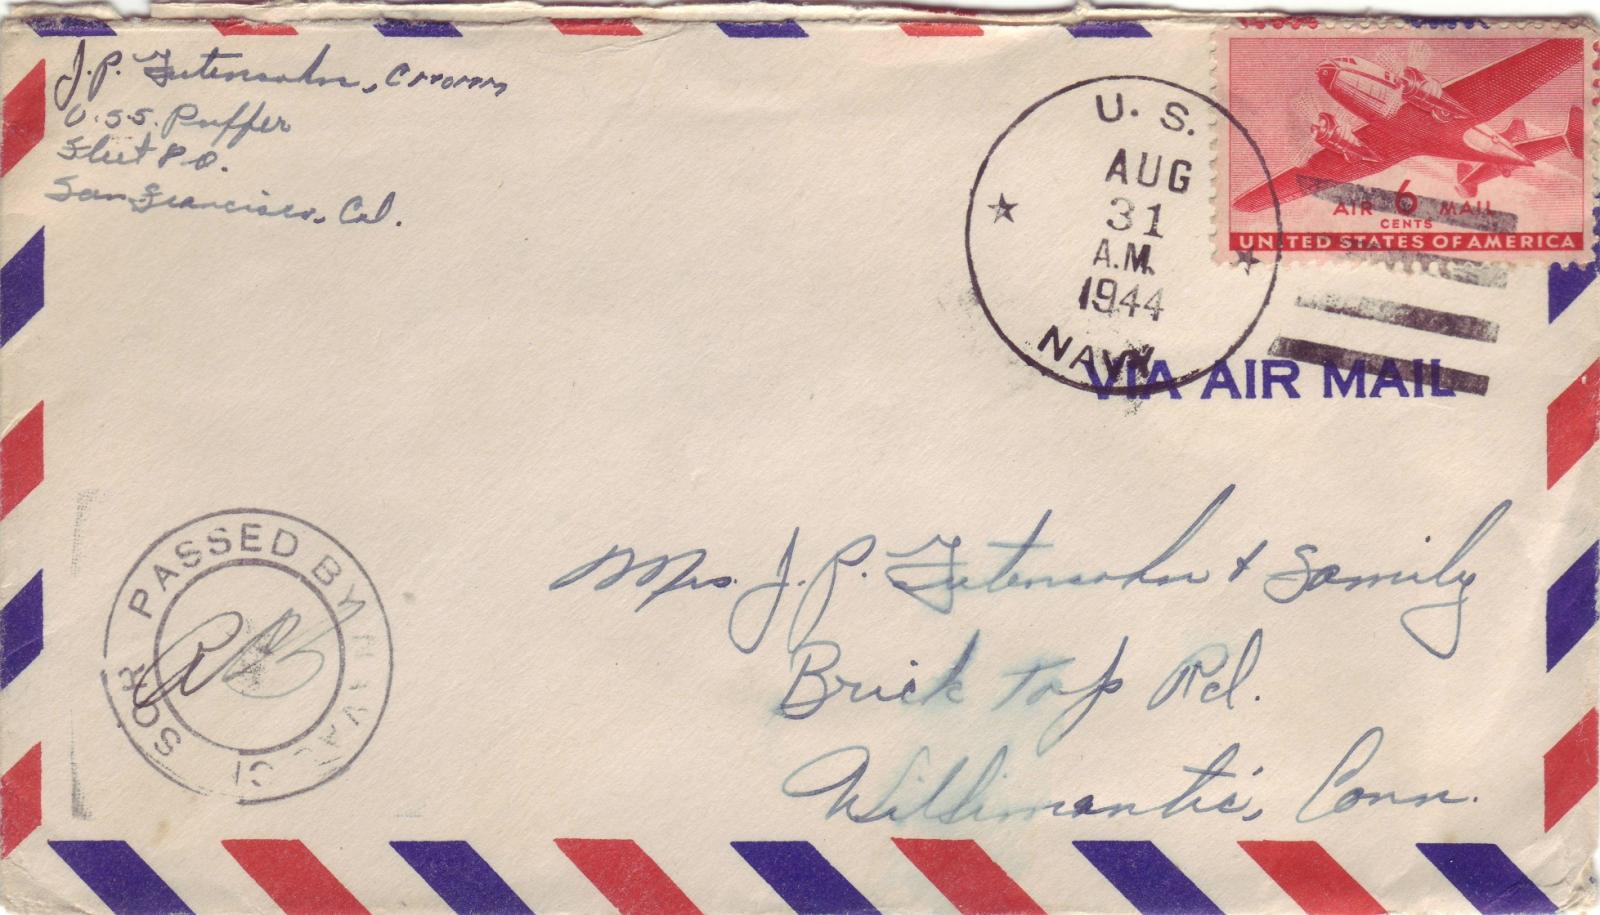 J.P. Gutensohn, CMoMM
U.S.S. Puffer
Fleet P.O.
San Francisco, Cal.
U. S.
AUG
31
A.M.
1944
NAVY
AIR 6 MAIL
CENTS
UNITED STATES OF AMERICA
VIA AIR MAIL
PASSED BY NAVAL
Mrs. J. P. Gutensohn & Family
Brick top Rd.
Willimantic, Conn.